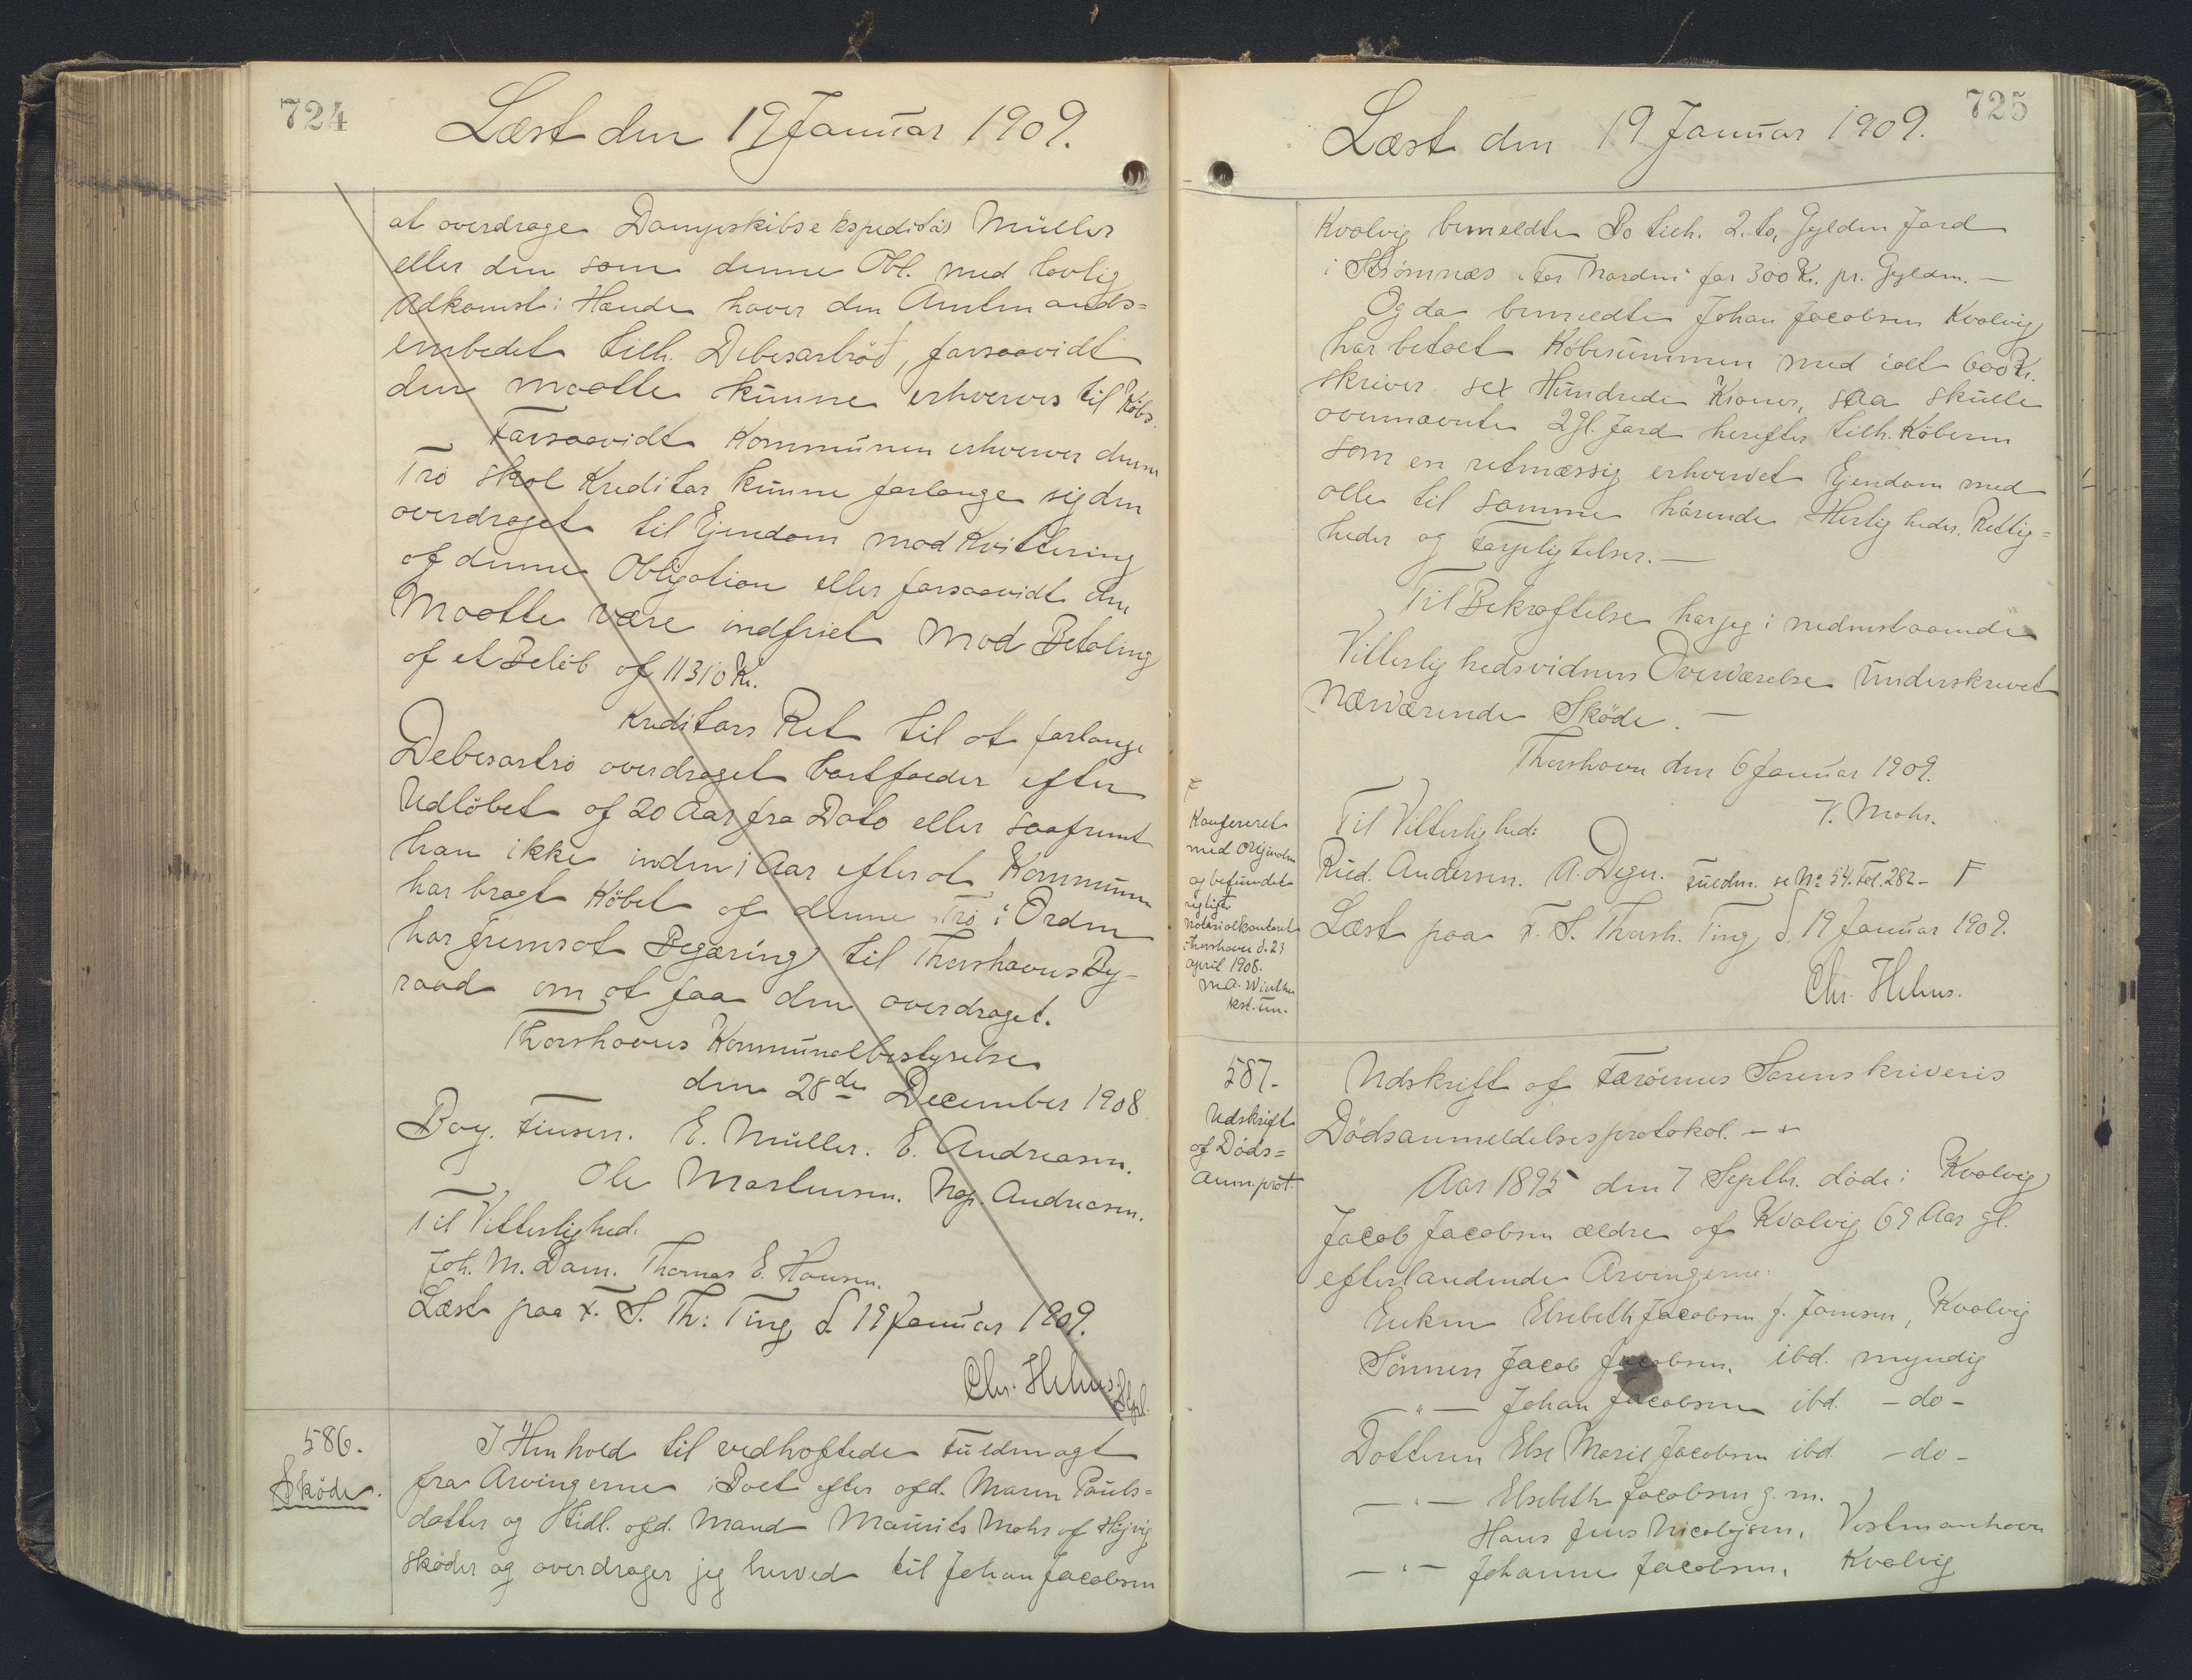 724
Læst den 19 Januar 1909.
at overdrage Dampskibsexpeditør Müller
eller den som denne Obl. med lovlig
Adkomst i Hænde haver den Amtmands=
embedet tilh. Debesartrød, forsaavidt
den maatte kunne erhverves til Købs.
Forsaavidt Kommunen erhverver denne
Trø skal Kreditor kunne forlange sig den
overdraget til Ejendom mod Kvittering
af denne Obligation eller forsaavidt den
Maatte være indfriet Mod Betaling
af et Beløb af 11310 Kr.
Kreditors Ret til at forlange
Debesartrø overdraget bortfalder efter
Udløbet af 20 Aar fra Dato eller saafremt
han ikke inden 1 Aar efter at Kommunen
har bragt Købet af denne Trø i Orden
har fremsat Begæring til Thorshavns By-
raad om at faa den overdraget.
Thorshavns Kommunalbestyrelse
den 28de December 1908.
Boy. Finsen. E. Müller. E. Andreasen.
Ole Mortensen. Nap. Andreasen.
Til Vitterlighed:
Joh. M. Dam. Thomas E. Hansen.
Læst paa F. S. Th: Ting d. 19 Januar 1909.
Chr. Helms.
586.
Skøde.
I Henhold til vedhæftede Fuldmagt
fra Arvingerne i Boet efter afd. Maren Pauls=
datter og tidl. afd. Mand Maurits Mohr af Højvig
skøder og overdrager jeg herved til Johan Jacobsen
725
Læst den 19 Januar 1909.
Kvalvig bemeldte Bo tilh. 2. to, Gylden Jord
i Strømnæs "for Norden" for 300 Kr. pr. Gylden. —
Og da bemeldte Johan Jacobsen Kvalvig
har betalt Købesummen med ialt 600 Kr.
skriver sex Hundrede Kroner, saa skulle
ovennævnte 2 Gl. Jord herefter tilh. Køberen
som en retmæssig erhvervet Ejendom med
alle til samme hørende Herligheder, Rettig=
heder og Forpligtelser. —
Til Bekræftelse har jeg i nedenstaaende
Vitterlighedsvidners Overværelse Underskrevet
Nærværende Skøde. —
Thorshavn den 6 Januar 1909.
V. Mohr.
Til Vitterlighed:
Rud. Andersen. A. Degn. Fuldm. se No 54. Fol. 282 — F
Læst paa F. S. Thorsh. Ting d. 19 Januar 1909.
Chr. Helms.
F
Konfereret
med Originalen
og befundet
rigtigt.
Notarialkontoret
i Thorshavn d. 23
april 1908.
M. A. Winther
kst. 
587.
Udskrift
af Døds=
Anm.prot.
Udskrift af Færøernes Sorenskriveris
Dødsanmeldelsesprotokol. — "
Aar 1895 den 7 Septbr. døde i Kvalvig
Jacob Jacobsen ældre af Kvalvig 69 Aar gl.
efterladende Arvingerne:
Enken Elsebeth Jacobsen f. Joensen, Kvalvig
Sønnen Jacob Jacobsen, ibd. myndig
— " — Johan Jacobsen ibd. — do —
Datteren Else Marie Jacobsen ibd. — do —
— " — Elsebeth Jacobsen g. m.
Hans Jens Nicolajsen, Vestmanhavn
— " — Johanne Jacobsen, Kvalvig